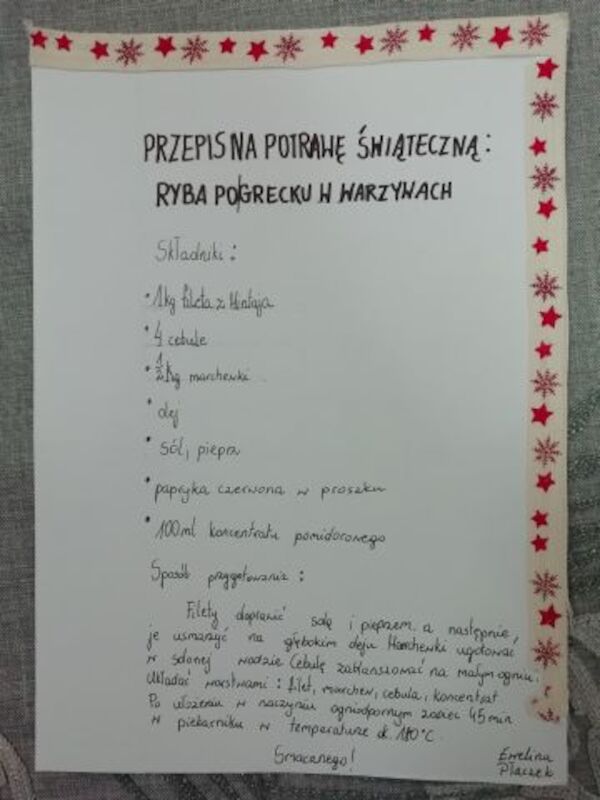 PRZEPIS NA POTRAWĘ ŚWIĄTECZNĄ:
RYBA PO GRECKU W WARZYWACH
Składniki:
• 1kg fileta z Mintaja
• 4 cebule
• ½ kg marchewki
• olej
• sól, pieprz
• papryka czerwona w proszku
• 100ml koncentratu pomidorowego
Sposób przygotowania:
Filety doprawić solą i pieprzem a następnie,
je usmażyć na głębokim oleju Marchewki ugotować
w solonej wodzie Cebulę zablanszować na małym ogniu.
Układać warstwami: filet, marchew, cebula, koncentrat
Po ułożeniu w naczyniu ognioodpornym zapiec 45 min
w piekarniku w temperaturze ok 180°C
Smacznego!
Ewelina
Płaczek